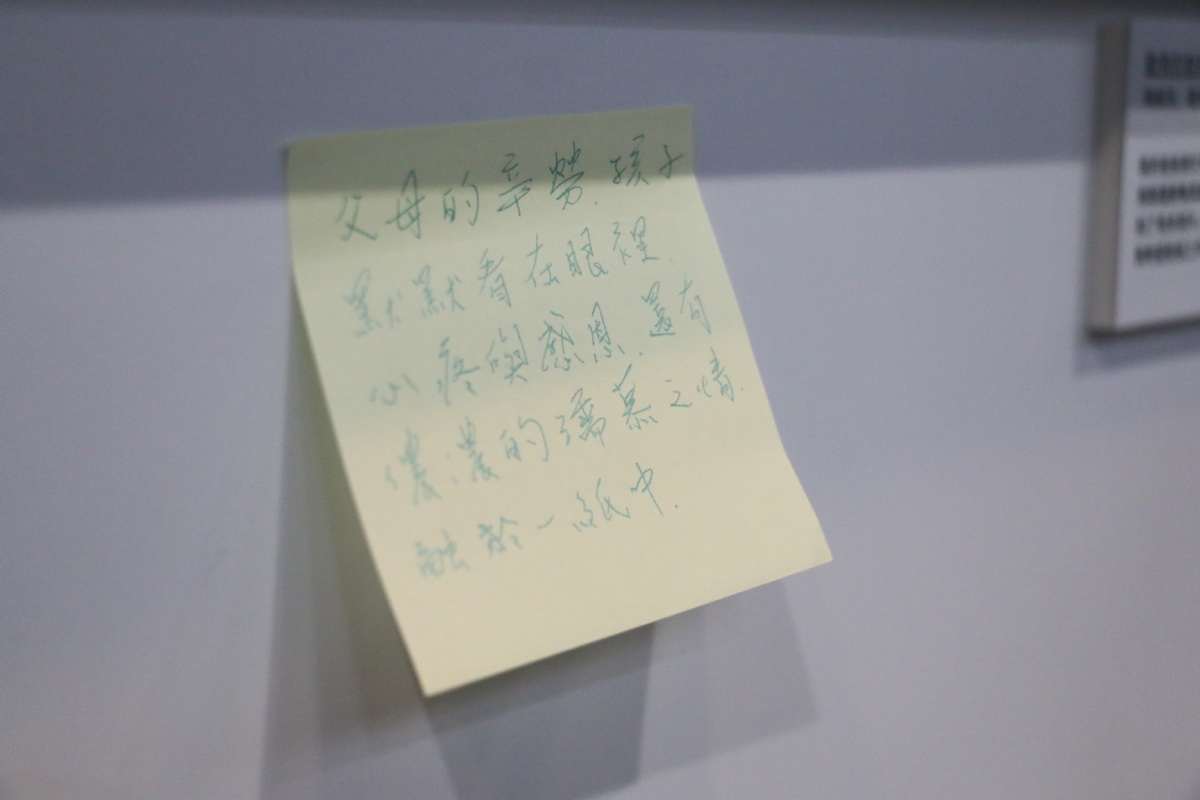 父母的辛勞.孩子
默默看在眼裡.
心疼與感恩.還有
濃濃的孺慕之情.
融於一紙中.